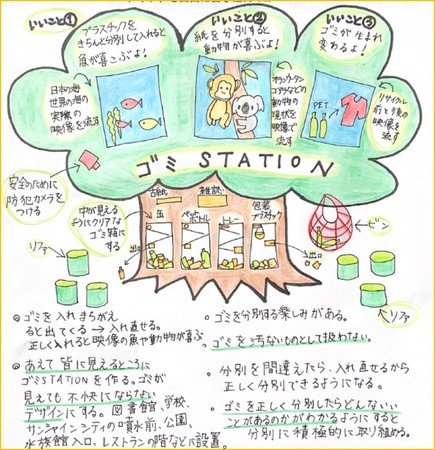 いいこと①
プラスチックを
きちんと分別して入れると
魚が喜こぶよ!
いいこと②
紙を分別すると
動物が喜ぶよ!
いいこと③
ゴミが生まれ
変わるよ!
日本の海
世界の海の
実際の
映像を流す
オランウータン
コアラなどの
動物の
現状を
映像で
流す
PET
リサイクル
前と後の
映像を
流す
ゴミSTATION
安全のために
防犯カメラを
つける
中が見える
ようにクリアな
ゴミ箱に
する
古紙
雑誌
缶
ペットボトル
トレー
包装
プラスチック
出口
出口
ビン
ソファ
ソファ
◎ゴミを入れまちがえ
ると出てくる→入れ直せる。
正しく入れると映像の魚や動物が喜ぶ
◎あえて皆に見えるところに
ゴミSTATIONを作る。ゴミが
見えても不快にならない
デザインにする。図書館、学校、
サンシャインシティの噴水前、公園、
水族館入口、レストランの階などに設置。
・ゴミを分別する楽しみがある。
・ゴミを汚ないものとして扱わない。
・分別を間違えたら、入れ直せるから
正しく分別できるようになる。
・ゴミを正しく分別したらどんないい
ことがあるのかがわかるようにすると
分別に積極的に取り組める。